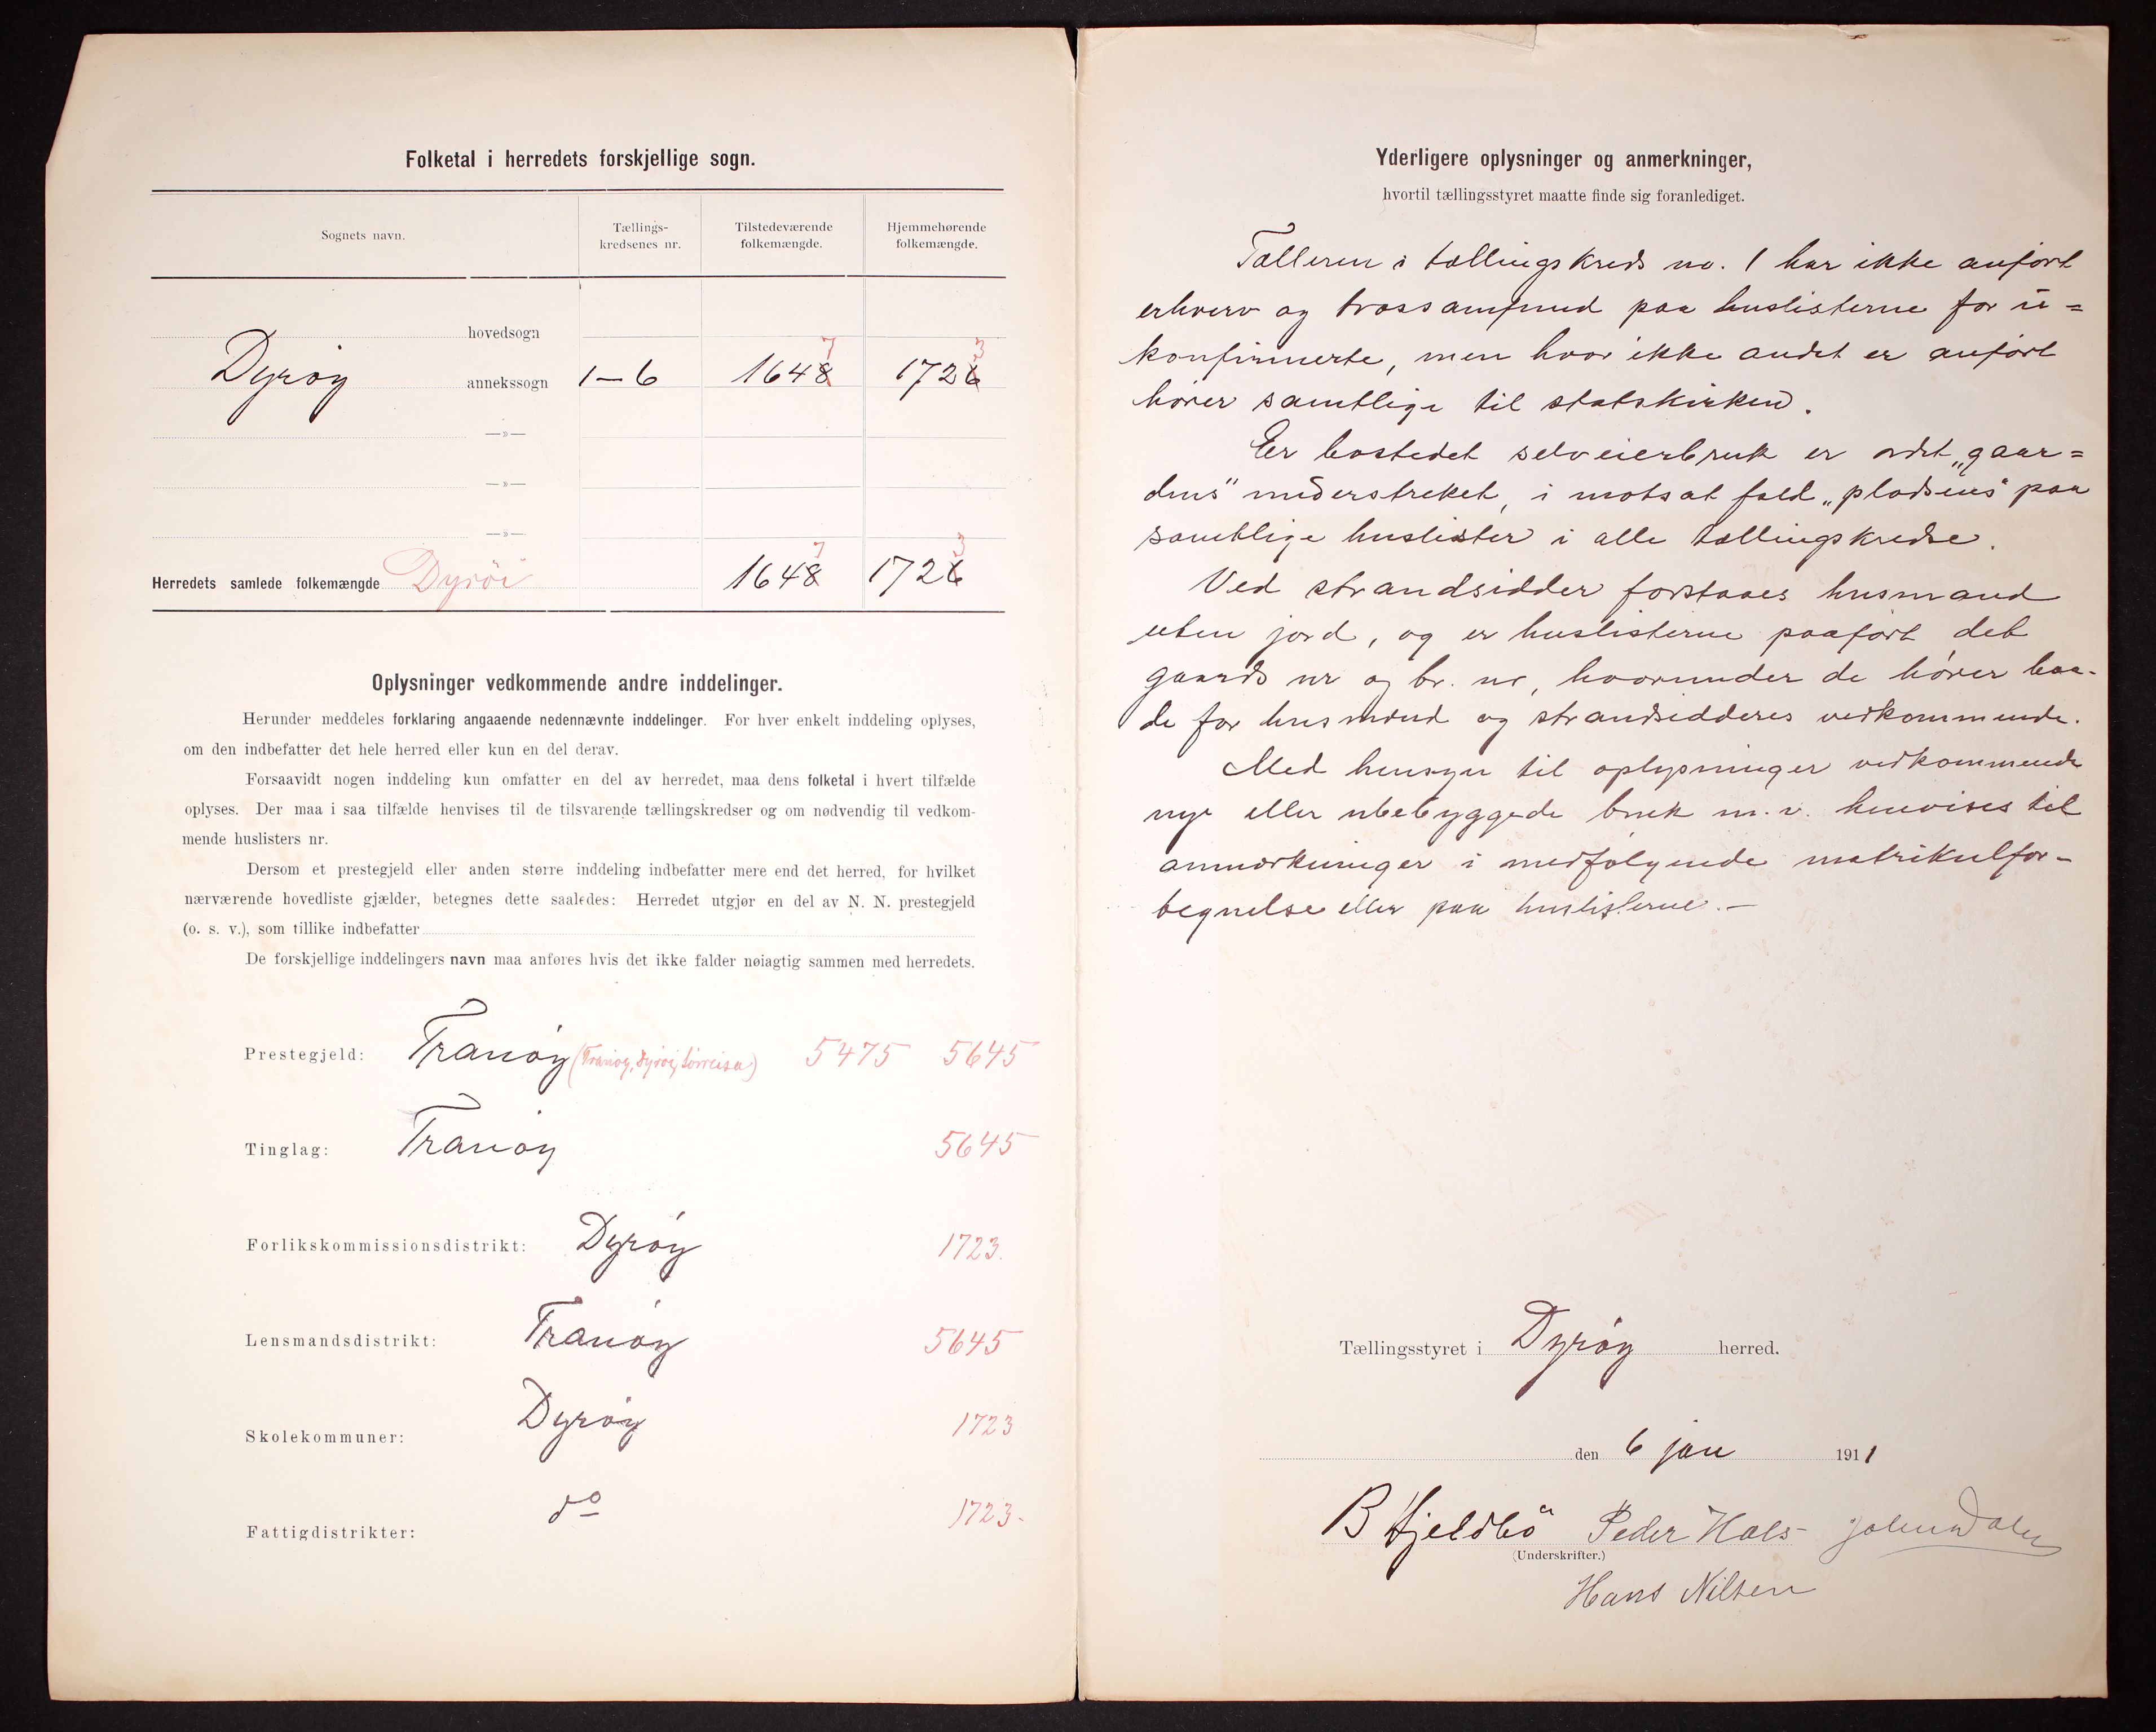 Folketal i herredets forskjellige sogn.
Sognets navn.
Tællings-
kredsenes nr.
Tilstedeværende
folkemængde.
Hjemmehørende
folkemængde.
hovedsogn
7 3
Dyrøy annekssogn 1–6 1648 1726
—»—
—»—
—»—
7 3
Herredets samlede folkemængde Dyröi 1648 1726
Oplysninger vedkommende andre inddelinger.
Herunder meddeles forklaring angaaende nedennævnte inddelinger. For hver enkelt inddeling oplyses,
om den indbefatter det hele herred eller kun en del derav.
Forsaavidt nogen inddeling kun omfatter en del av herredet, maa dens folketal i hvert tilfælde
oplyses. Der maa i saa tilfælde henvises til de tilsvarende tællingskredser og om nødvendig til vedkom-
mende huslisters nr.
Dersom et prestegjeld eller anden større inddeling indbefatter mere end det herred, for hvilket
nærværende hovedliste gjælder, betegnes dette saaledes: Herredet utgjør en del av N. N. prestegjeld
(o. s. v.), som tillike indbefatter
De forskjellige inddelingers navn maa anføres hvis det ikke falder nøiagtig sammen med herredets.
Prestegjeld: Tranøy (Tranøy, Dyrøy, Sørreisa) 5475 5645
Tinglag: Tranøy 5645
Forlikskommissionsdistrikt: Dyrøy 1723.
Lensmandsdistrikt: Tranøy 5645
Skolekommuner: Dyrøy 1723
Fattigdistrikter: do 1723.
Yderligere oplysninger og anmerkninger,
hvortil tællingsstyret maatte finde sig foranlediget.
Tælleren i tællingskreds no. 1 har ikke anført
erhverv og trossamfund paa huslisterne for u=
konfirmerte, men hvor ikke andet er anført
hører samtlige til statskirken.
Er bostedet selveierbruk er ordet „gaar=
dens" understreket, i motsat fald „pladsens" paa
samtlige huslister i alle tællingskredse.
Ved strandsidder forstaaes husmand
uten jord, og er huslisterne paaført det
gaards nr og br. nr, hvorunder de hører baa-
de for husmænd og strandsidderes vedkommende.
Med hensyn til oplysninger vedkommende
nye eller ubebyggede bruk m. v. henvises til
anmærkninger i medfølgende matrikulfor-
tegnelse eller paa huslisterne.—
Tællingsstyret i Dyrøy herred.
den 6 jan 1911
B Hjeldbö Peder Hals
(Underskrifter.)
Hans Nilsen